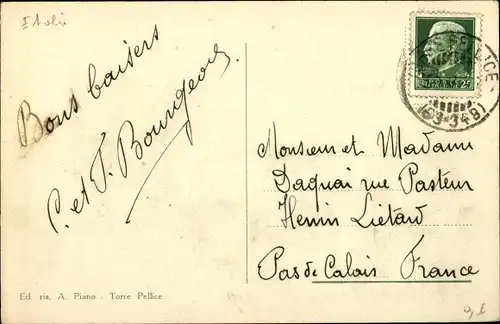 Italie
Bons baisers
P. et T. Bourgeois
Monsieur et Madame
Daquai rue Pasteur
Henin Lietard
Pas de Calais France
Ed. ris. A. Piano - Torre Pellice.